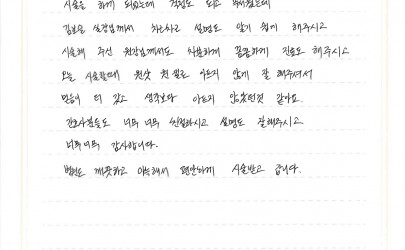 시술을 하게 되었는데 걱정도 되고 무서웠는데
김보은 실장님께서 차근차근 설명도 알기 쉽게 해주시고
시술해 주신 원장님께서도 차분하게 꼼꼼하게 진료도 해주시고
아프지 않게 잘 해주셔서
믿음이 더 갔고 생각보다 아프지 않았던것 같아요.
간호사분들도 너무 너무 친절하시고 설명도 잘해주시고
너무너무 감사합니다.
병원도 깨끗하고 아늑해서 편안하게 시술받고 갑니다.